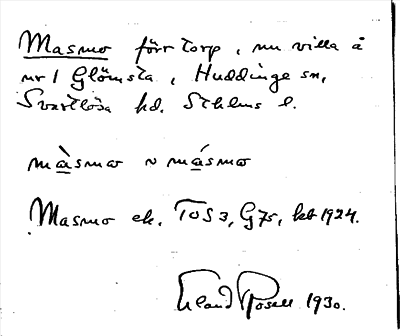 Masmo förr torp, nu villa å
nr 1 Glömsta, Huddinge sn,
Svartlösa hd. Sthlms l.
mа̀smω ~ mа́smω
Masmo ek. TOS 3, G75, kbt 1924.
Erland Rosell 1930.